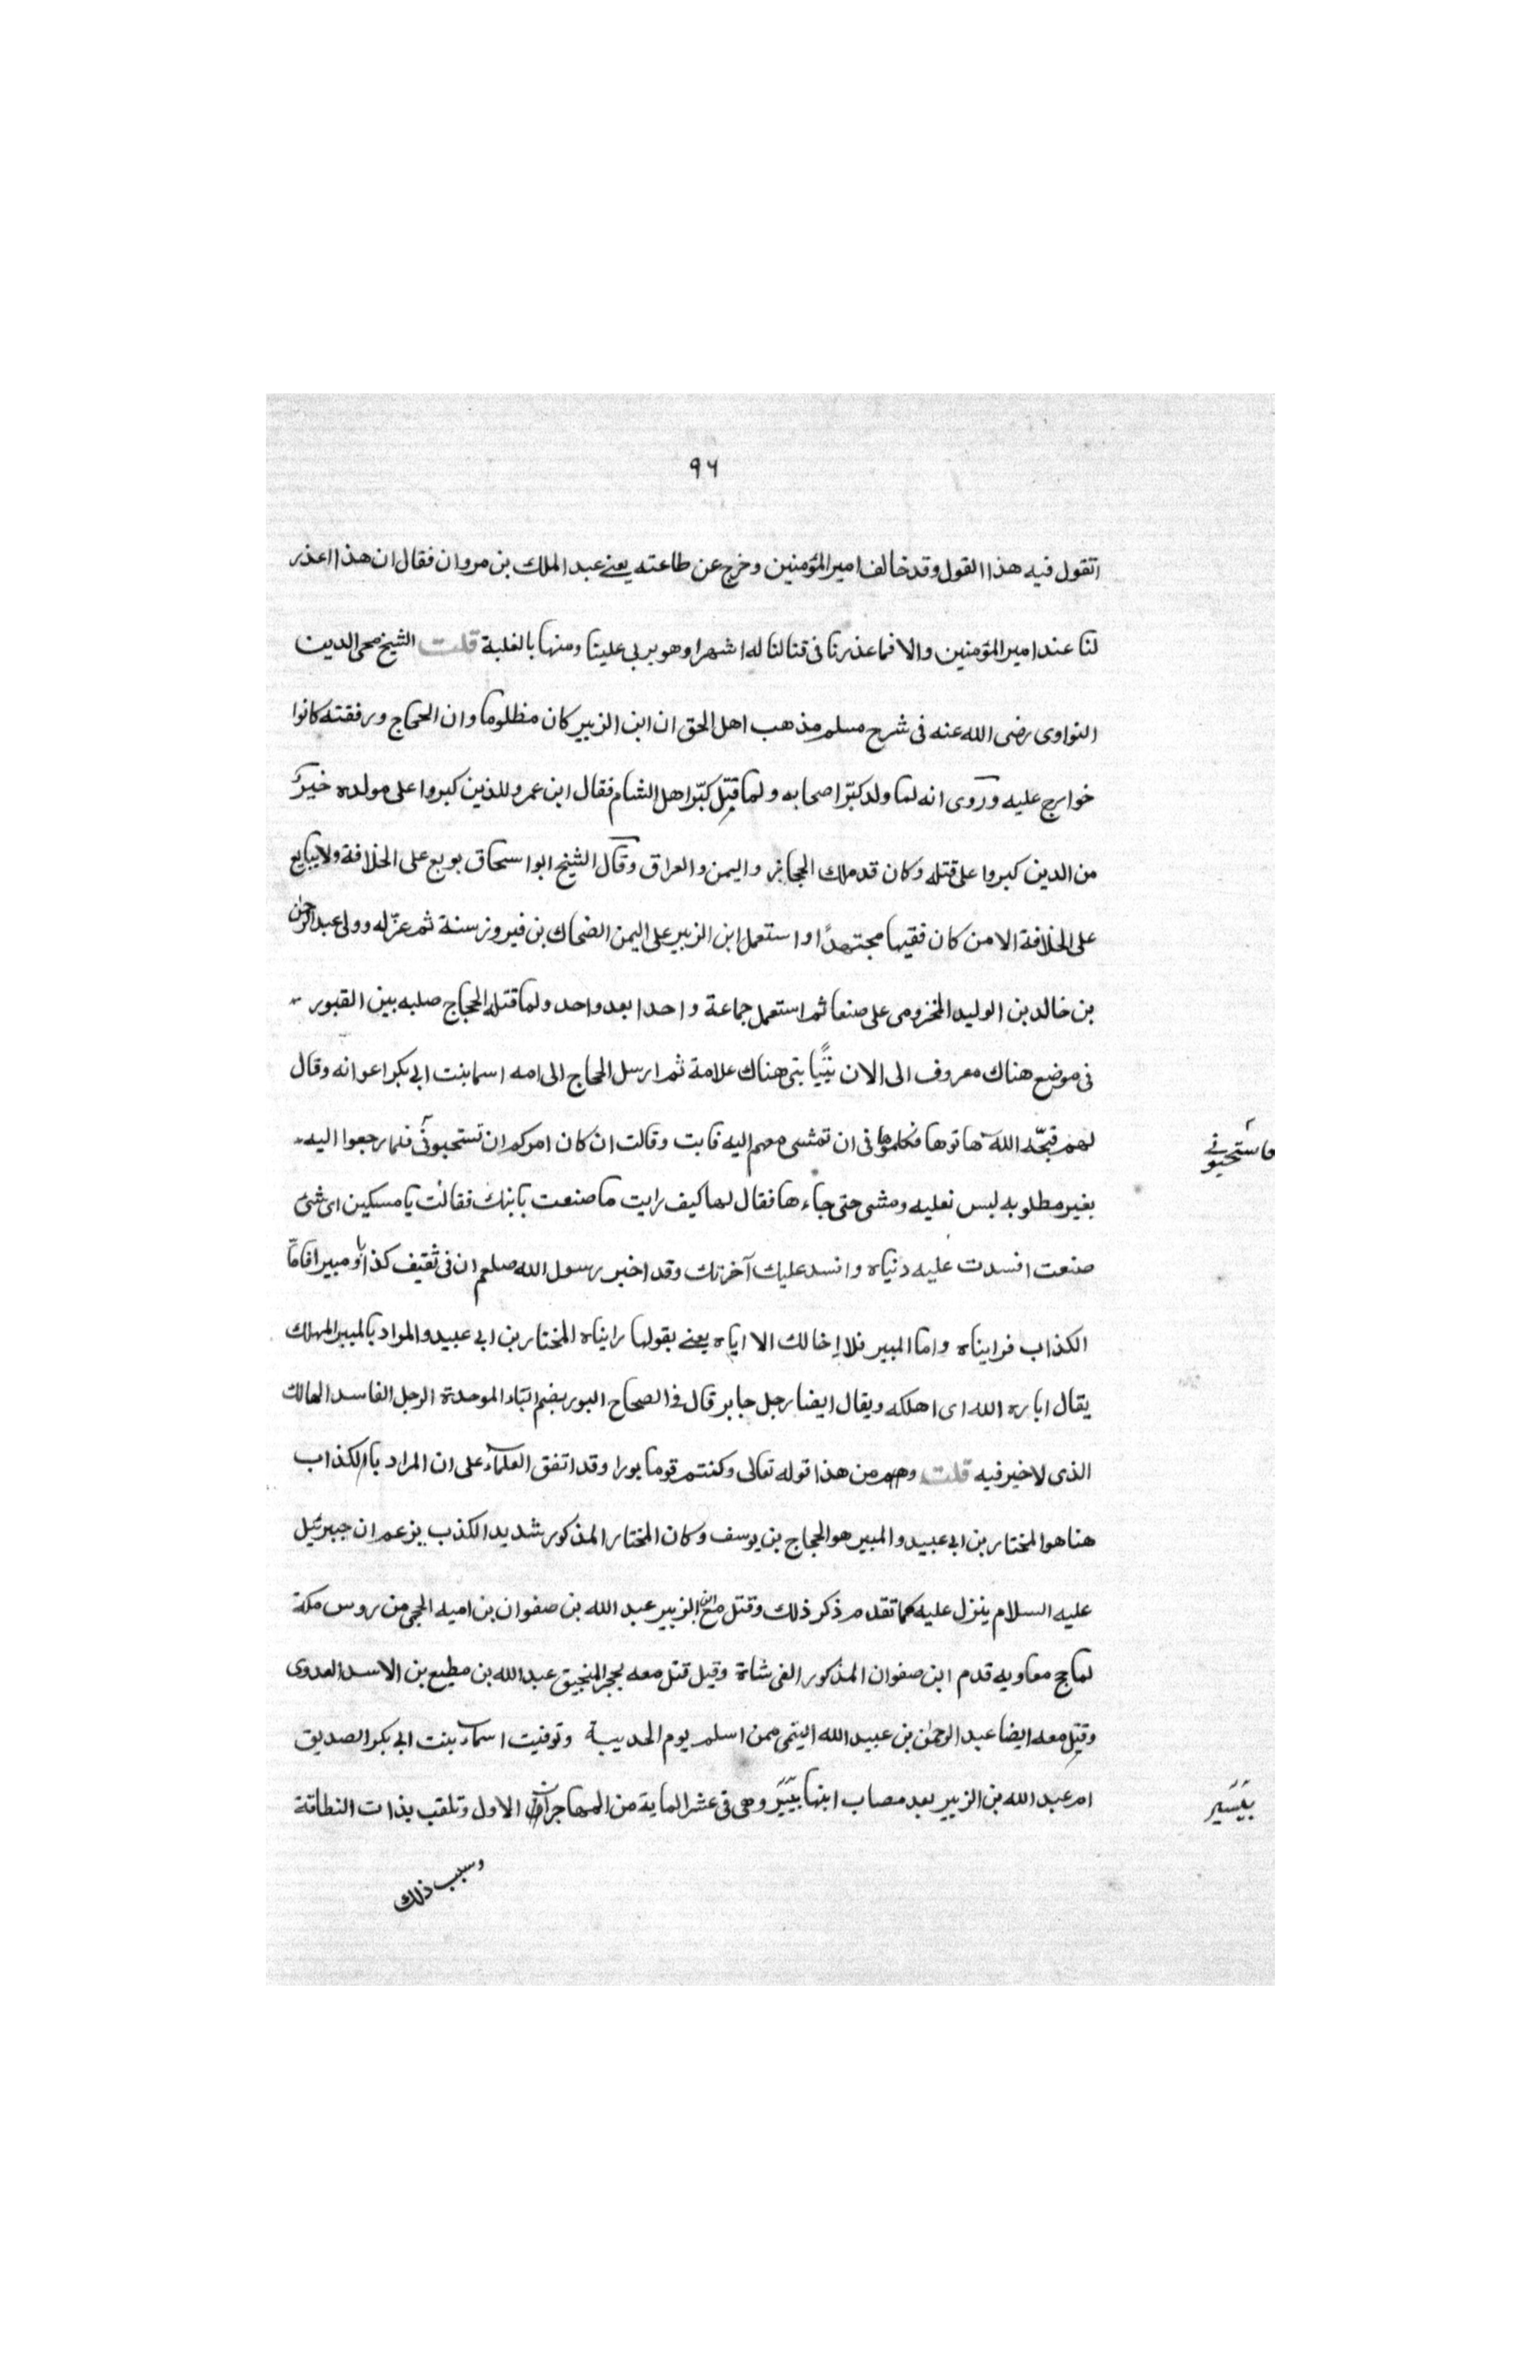 ٩٦
اتقول فيه هذا القول وقد خالف امير المؤمنين وخرج عن طاعته يعني عبد الملك بن مروان فقال ان هذا اعذر
لنا عند امير المؤمنين والا فما عذرنا في قتالنا له اشهرا وهو يربى علينا ومنها بالغلبة قلت الشيخ محى الدين
النواوى رضى الله عنه فى شرح مسلم مذهب اهل الحق ان ابن الزبير كان مظلوما وان الحجاج ورفقته كانوا
خوارج عليه وروى انه لما ولد كبّر اصحابه ولما قتل كبّر اهل الشام فقال ابن عمر وللذين كبروا على مولده خير
من الدين كبروا على قتله وكان قد ملك الحجاز واليمن والعراق وقال الشيخ ابو اسحاق بويع على الخلافة ولا يبايع
على الخلافة الا من كان فقيها مجتهدًا واستعمل ابن الزبير على اليمن الضحاك بن فيروز سنة ثم عزّله وولى عبد الرحمن
بن خالد بن الوليد المخزومى على صنعا ثم استعمل جماعة واحدا بعد واحد ولما قتله الحجاج صلبه بين القبور
فى موضع هناك معروف الى الان بنى هناك علامة ثم ارسل الحجاج الى امه اسما بنت ابى بكر اعوانه وقال
لهم قبّحه الله هاتوها فكلموها فى ان تمشى معهم اليه فابت وقالت ان كان امركم ان تستحبونى فلما رجعوا اليه
فاستحيوني
بغير مطلوبه لبس نعليه ومشى حتى جاءها فقال لها كيف رايت ما صنعت بابنك فقالت يا مسكين اى شئ
صنعت افسدت عليه دنياه وافسد عليك آخرتك وقد اخبر رسول الله صلعم ان فى ثقيف كذابا ومبيرا فاما
الكذاب فرايناه واما المبير فلا اخالك الا اياه يعنى بقولها رايناه المختار بن ابى عبيد والمراد بالمبير المهلك
يقال اباره الله اى اهلكه ويقال ايضا رجل جابر قال فى الصحاح البور بضم الباء الموحدة الرجل الفاسد الهالك
الذى لا خير فيه قلت وهم من هذا قوله تعالى وكنتم قوما بورا وقد اتفق العلماء على ان المراد بالكذاب
هنا هو المختار بن ابى عبيد والمبير هو الحجاج بن يوسف وكان المختار المذكور شديد الكذب يزعم ان جبرئيل
عليه السلام ينزل عليه كما تقدم ذكر ذلك وقتل مع ابن الزبير عبد الله بن صفوان بن اميه الجمحى من روس مكة
لما حج معاويه قدم ابن صفوان المذكور الفى شاة وقيل قتل معه بحجر المنجنيق عبد الله بن مطيع بن الاسد العدوى
وقتل معه ايضا عبد الرحمن بن عبيد الله التيمى ممن اسلم يوم الحديبية وتوفيت اسماء بنت ابى بكر الصديق
ام عبد الله بن الزبير بعد مصاب ابنها بيسير وهى فى عشر الماية من المهاجرات الاول وتلقب بذات النطاقة
بيسير
وسبب ذلك